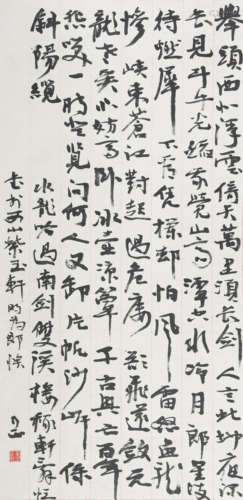 舉頭西北浮雲倚天萬里須長劍人言此地夜深
長見斗牛光焰我覺山高潭空水冷月明星淡
待燃犀下看凭欄却怕風雷怒魚龍
慘峽束蒼江對起過危樓欲飛還斂元
龍老矣不妨高卧冰壺涼簟千古興亡百年
悲笑一時登覽問何人又卸片帆沙岸係
斜陽纜
水龍吟過南劍雙溪樓稼軒